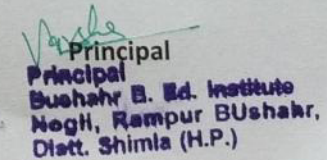 Principal
Principal
Bushahr B. Ed. Institute
Nogli, Rampur BUshahr,
Distt. Shimla (H.P.)